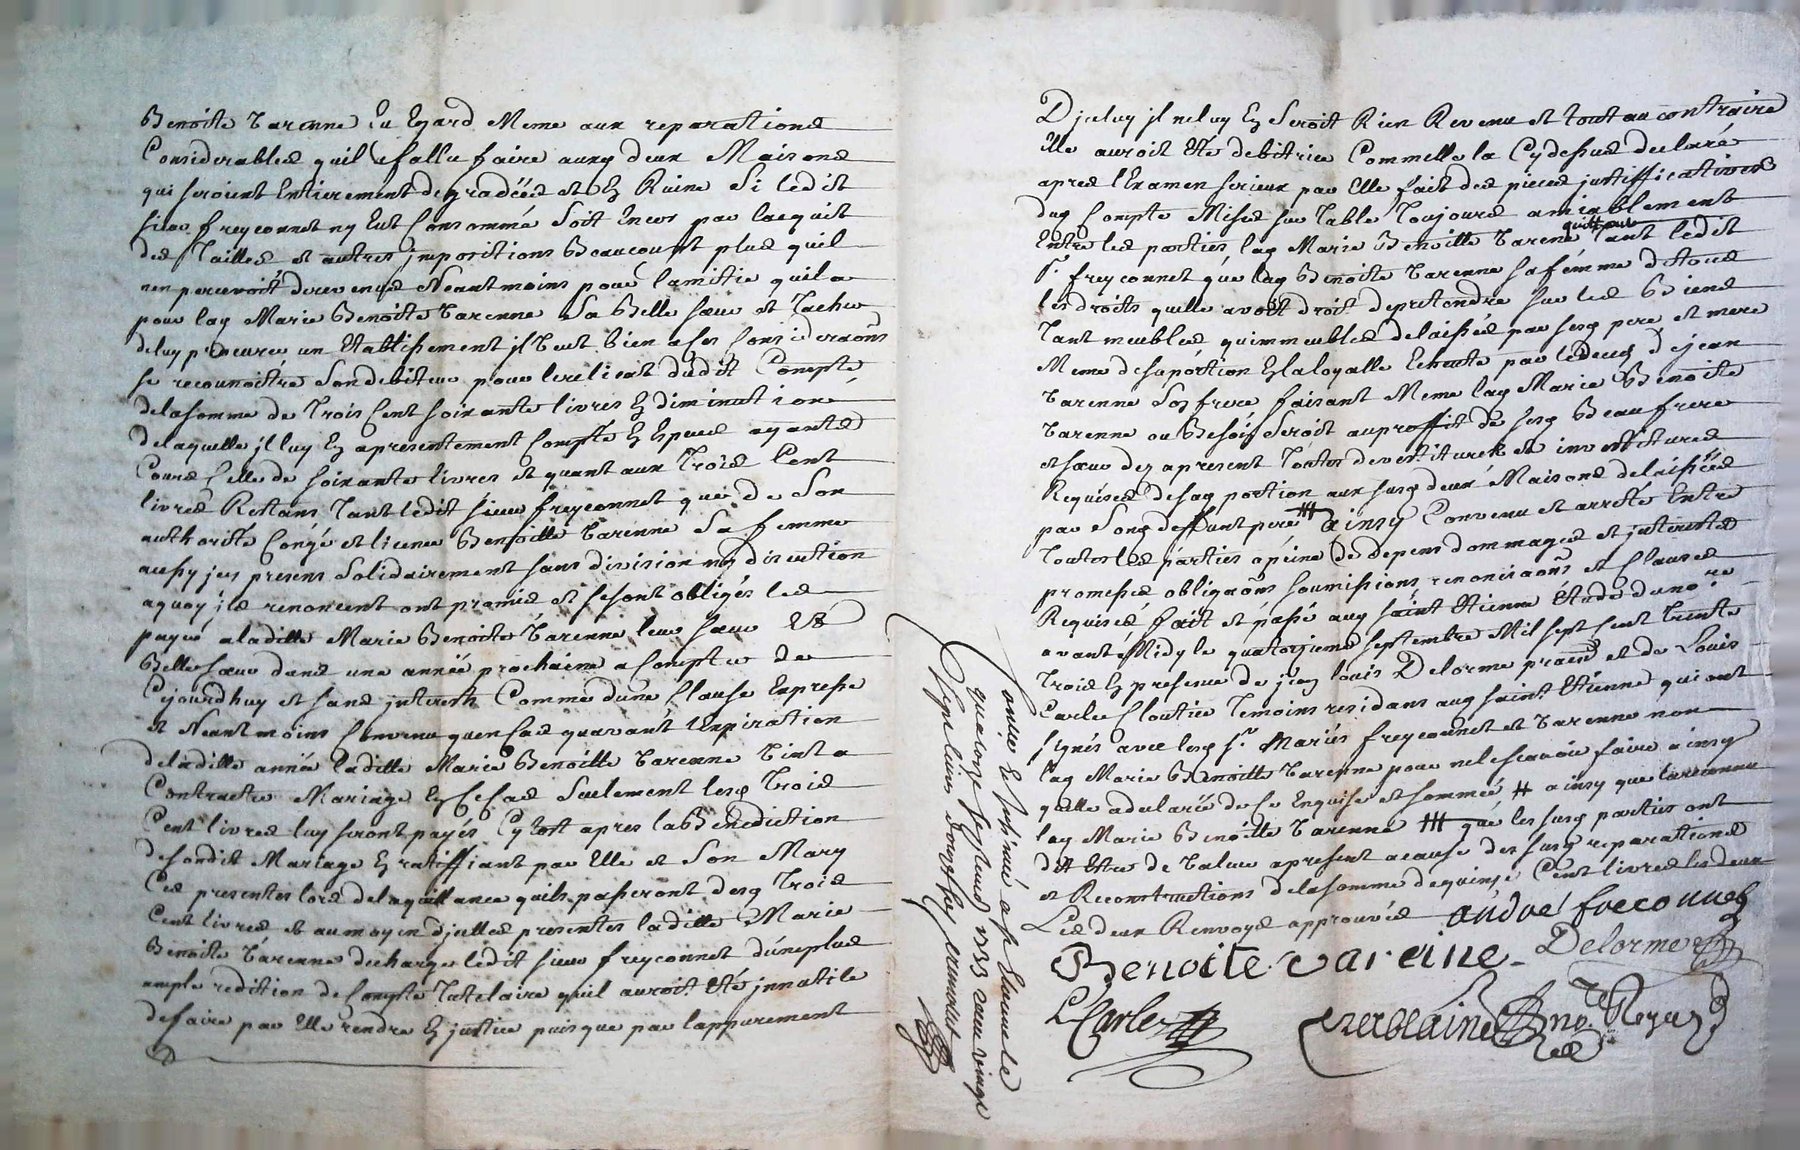 Benoite Varenne Eu Egard Meme aux reparations
Considerables quil a fallu faire auxq deux Maisons
qui seroient Entierement degradées et En Ruine Si ledit
sieur freyconnet ny Eut Consommé Soit Encor par lacquit
des Tailles et autres impositions Beaucoupt plus quil
nen percevoit de revenus Neantmoins pour lamitie quil a
pour lad Marie Benoite Varenne Sa Belle sœur et Tacher
deluy procurer un Etablissement il Veut bien a ses Considera͠ons
se reconnoitre Son debiteur pour le relicat dudit Compte
delasomme de Trois Cent soixante livres En diminution
delaquelle il luy En apresentement Compté En Especes ayants
Cours Celle de soixante livres et quant aux Trois Cent
livres Restans Tant ledit sieur freyconnet que de Son
authorité Congé et licence Benoitte Varenne Sa femme
aussy icy presens Solidairement sans division ny discution
aquoy ils renoncent ont promis et se sont obligés les
payer aladitte Marie Benoite Varenne leur sœur Et
Belle sœur dans une année prochaine a Compter de
Cejourdhuy et sans interests Comme dune Clause Expresse
et Neantmoins Convenu quen Cas quavant lExpiration
deladitte année laditte Marie Benoitte Varenne Vint a
Contracter Mariage En Ce Cas Seulement lesq Trois
Cent livres luy seront payés Cytost apres la Benediction
desondit Mariage En ratiffiant par Elle et Son Mary
Ces presentes lors delaquittance quils passeront desq Trois
Cent livres et au moyen d'jcelles presentes laditte Marie
Benoite Varenne decharge ledit sieur freyconnet duneplus
ample redition de Compte Tutelaire quil auroit Eté innutile
defaire par Elle rendre En justice puisque par lappurement
D'jceluy il neluy En Seroit Rien Revenu et tout au contraire
Elle auroit Eté debitrice Comme Elle la Cydessus declaré
apres lExamen serieux par Elle fait des pieces justifficatives
dud Compte Mises sur Table Toujours amiablement
Entre les parties lad Marie Benoitte Varenne quitte tant ledit
Sr. freyconnet que lad Benoite Varenne sa femme de tous
les droits quelle avoit droit depretendre sur les Biens
Tant meubles quimmeubles delaissés par sesd pere et mere
Meme desaportion En la loyalle Echeute par ledeced dejean
Varenne Son frere faisant Meme lad Marie Benoite
Varenne ou Besoin Seroit auproffit de sesd Beau frere
et sœur dez apresent Toutes devestitures et investitures
Requises desad portion aux susd deux Maisons delaissées
par Sond deffunt pere # ainsy Convenu et arreté Entre
Toutes les parties apeine de depens dommages et interests
promesses obliga͠ons soumissions renoncia͠ons et Clauses
Requises fait et passé aud saint Etienne Etude dunore
avant Midy le quatorzieme septembre Mil sept Cent Trente
Trois En presence de jean louis Delorme pratn et de Louis
Carles Cloutier Temoins residans aud saint Etienne qui ont
signés avec lesd Sr. Mariés freyconnet et Varenne non
lad Marie Benoitte Varenne pour nelescavoir faire ainsy
quelle a declaré de ce Enquise et sommée # ainsy que lareconnu
lad Marie Benoitte Varenne # que les susd parties ont
dit Etre de Valeur apresent acause des susd reparations
et Reconstructions delasomme dequinze Cent livres les deux
Les deux Renvoys approuvés andre freconnet
Benoite vareine Delorme
L Carles verblaine no.re Royal
Controllé et Insinué a St Etienne le
quatorze septembre 1733 receu vingt